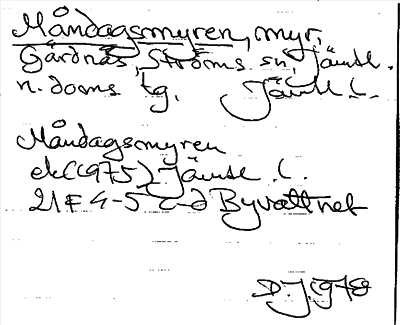 Måndagsmyren, myr.
Gärdnäs, Ströms sn, Jämtl.
n. doms tg. Jämtl. L.
Måndagsmyren
ek (1975) Jämtl. L.
21 F 4-5 c-d Byvattnet
D.J. 1978